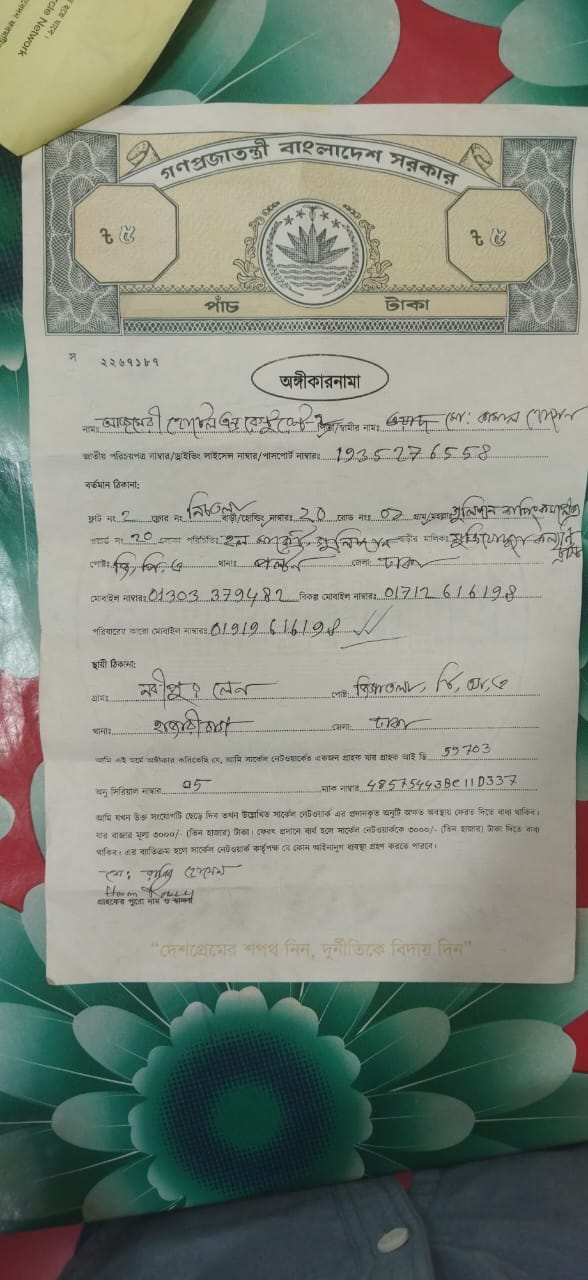 Circle Network
গণপ্রজাতন্ত্রী বাংলাদেশ সরকার
৳ ৫ ৳ ৫
পাঁচ টাকা
স ২২৬৭১৮৭
অঙ্গীকারনামা
নাম: হোটেল এন্ড পিতা/স্বামীর নাম: মো: কামাল হোসেন
জাতীয় পরিচয়পত্র নাম্বার/ড্রাইভিং লাইসেন্স নাম্বার/পাসপোর্ট নাম্বার: 1935276558
বর্তমান ঠিকানা:
ফ্ল্যাট নং 2 ফ্লোর নং নিচতলা বাড়ী/হোল্ডিং নাম্বার: 20 রোড নংঃ 02 গ্রাম/মহল্লা:
ওয়ার্ড নং 20 এলাকা পরিচিতি: হল মার্কেট, গুলিস্তান বাড়ীর মালিক: মুক্তিযোদ্ধা কল্যাণ ট্রাস্ট
পোষ্ট: জি, পি, ও থানা: পল্টন জেলা: ঢাকা
মোবাইল নাম্বার: 01303 379482 বিকল্প মোবাইল নাম্বার: 01712616198
পরিবারের কারো মোবাইল নাম্বার: 01919 616198
স্থায়ী ঠিকানা:
গ্রাম: নবীপুর লেন পোষ্ট: জিগাতলা,
থানা: হাজারীবাগ জেলা: ঢাকা
আমি এই মর্মে অঙ্গীকার করিতেছি যে, আমি সার্কেল নেটওয়ার্কের একজন গ্রাহক যার গ্রাহক আই ডি 59703
অনু সিরিয়াল নাম্বার 05 ম্যাক নাম্বার 48575443BE11D337
আমি যখন উক্ত সংযোগটি ছেড়ে দিব তখন উল্লেখিত সার্কেল নেটওয়ার্ক এর প্রদানকৃত অনুটি অক্ষত অবস্থায় ফেরত দিতে বাধ্য থাকিব।
যার বাজার মূল্য ৩০০০/- (তিন হাজার) টাকা। ফেরৎ প্রদানে ব্যর্থ হলে সার্কেল নেটওয়ার্ককে ৩০০০/- (তিন হাজার) টাকা দিতে বাধ্য
থাকিব। এর ব্যতিক্রম হলে সার্কেল নেটওয়ার্ক কর্তৃপক্ষ যে কোন আইনানুগ ব্যবস্থা গ্রহণ করতে পারবে।
মো: হোসেন
গ্রাহকের পুরো নাম ও স্বাক্ষর
“দেশপ্রেমের শপথ নিন, দুর্নীতিকে বিদায় দিন”